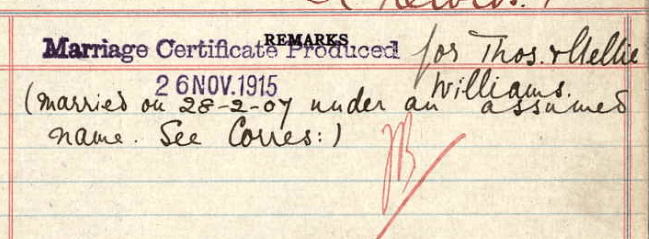 REMARKS
Marriage Certificate Produced for Thos. & Nellie
Williams.
26 NOV. 1915
(married on 28-2-07 under an assumed
name. See Corres:)